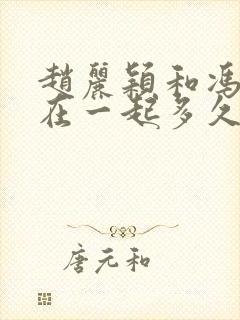 趙麗穎和馮
在一起多久
唐元和